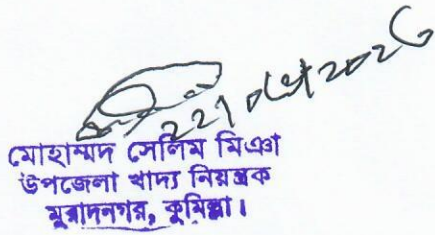 মোহাম্মদ সেলিম মিঞা
উপজেলা খাদ্য নিয়ন্ত্রক
মুরাদনগর, কুমিল্লা।